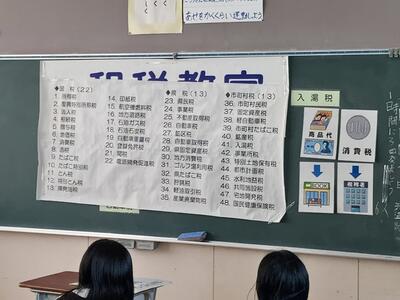 しく
あせをかくくらい運動しよう
租税教室
◆国 税(22)
1. 所得税
2. 復興特別所得税
3. 法人税
4. 相続税
5. 贈与税
6. 地価税
7. 消費税
8. 酒税
9. たばこ税
10. たばこ特別税
11. とん税
12. 特別とん税
13. 揮発油税
14. 印紙税
15. 航空機燃料税
16. 地方道路税
17. 石油ガス税
18. 石油石炭税
19. 自動車重量税
20. 登録免許税
21. 関税
22. 電源開発促進税
◆県 税(13)
23. 県民税
24. 事業税
25. 不動産取得税
26. 自動車税
27. 鉱区税
28. 自動車取得税
29. 県固定資産税
30. 地方消費税
31. ゴルフ場利用税
32. 県たばこ税
33. 狩猟税
34. 軽油取引税
35. 産業廃棄物税
◆市町村税(13)
36. 市町村民税
37. 固定資産税
38. 軽自動車税
39. 市町村たばこ税
40. 鉱産税
41. 入湯税
42. 事業所税
43. 特別土地保有税
44. 都市計画税
45. 水利地益税
46. 共同施設税
47. 宅地開発税
48. 国民健康保険税
入湯税
商品代
消費税
税務署